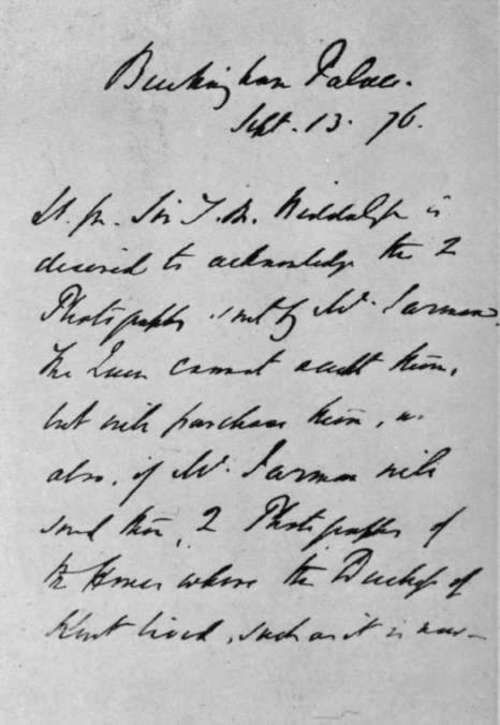 Buckingham Palace.
Sept. 13. 76.
Lt. Gn. Sir T. M. Biddulph is
desired to acknowledge the 2
Photographs sent by Mr. Jarman.
The Queen cannot accept them,
but will purchase them, as
also, if Mr. Jarman will
send them, 2 Photographs of
the House where the Duchess of
Kent lived, such as it is now—